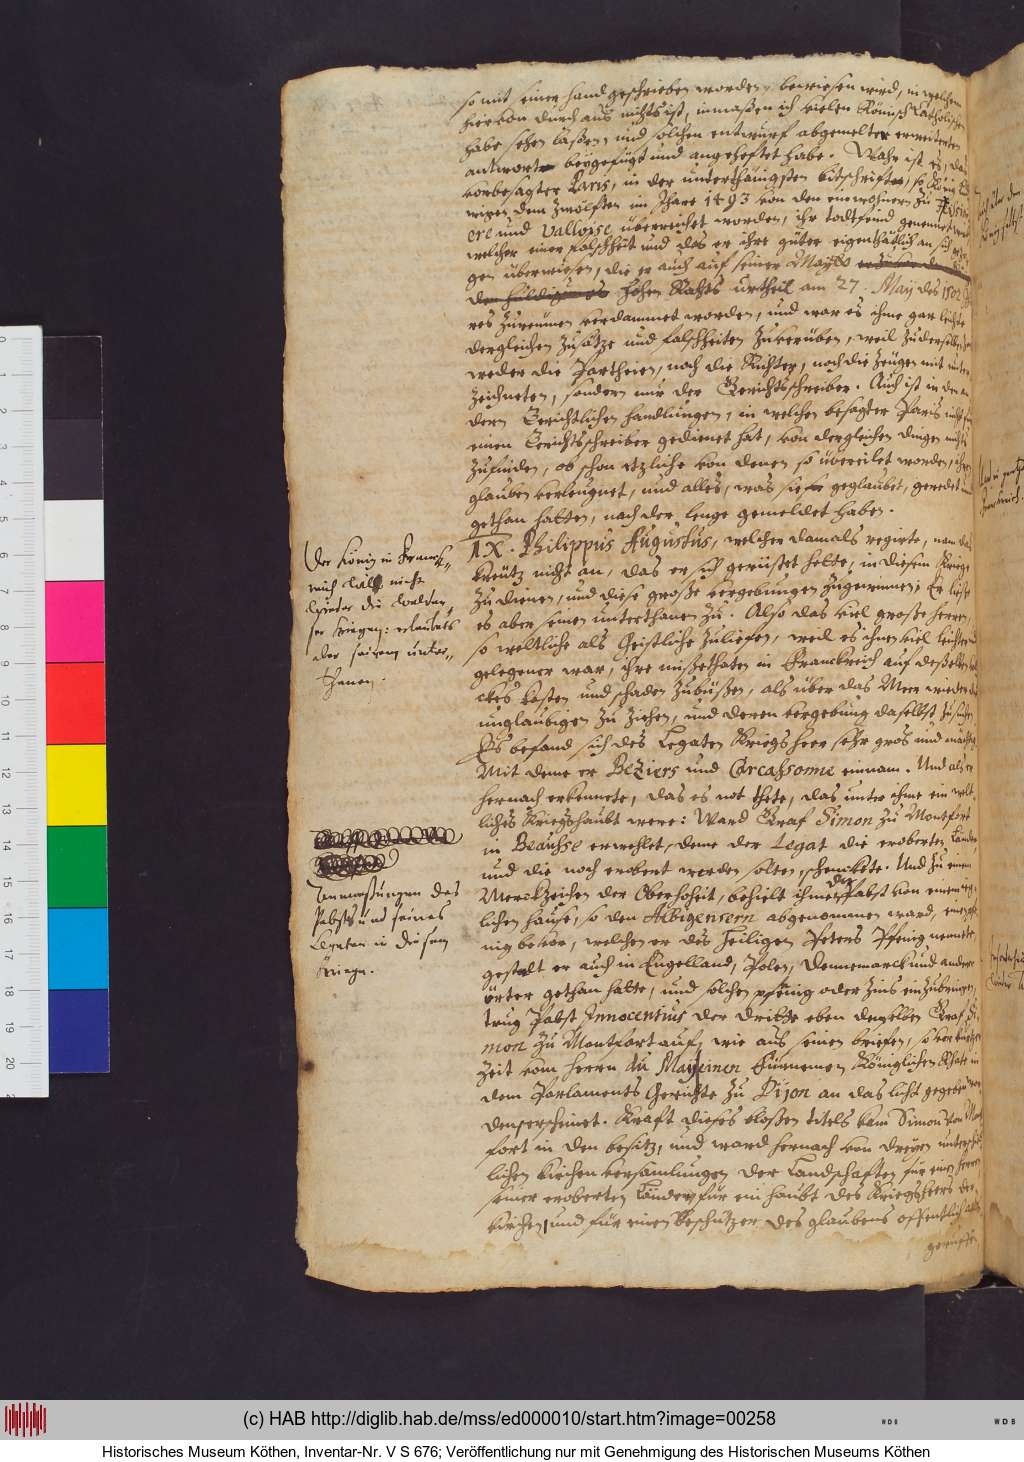 so mit seiner hand geschrieben worden, bewiesen wird, in welchem
hiervon durch aus nichts ist, inmaßen ich vielen Römisch Catholischen
habe sehen laßen, und solchen entwurf abgemelter erweiterten
antwort beygefügt und angeheftet habe. Wahr ist es, das
vorbesagter Paris, in der unterthänigsten bitschriften, so König
dem zwölften im Jhare 1493 von den einwohnern zu
und Valloise überreichet worden, ihr todtfeind genennet wird
welcher einer falschheit und das er ihre güter eigenthätlich an sich
gen überwiesen, die er auch auf seiner
hohen Rahts urtheil am 27. May des 1502
res zureümen verdammet worden, und war es ihme gar leichte
dergleichen zusätze und falschheiten zuverüben, weil zuderselben
weder die Partheien, noch die Richter, noch die zeügen mit unter
zeichneten, sondern nur der Gerichtsschreiber. Auch ist in den an
dern Gerichtlichen handlungen, in welchen besagter Paris nicht für
einen Gerichtsschreiber gedienet hat, von dergleichen dingen nichts
zufinden, ob schon etzliche von denen so übereilet worden, ihren
glauben verleugnet, und alles, was sie geglaubet, geredet und
gethan hatten, nach der lenge gemeldet haben.
IX. Philippus Augustus, welcher damals regirte, nam das
Kreütz nicht an, das er sich gerüstet hette, in diesem Kriege
zu dienen, und diese große vergebungen zugewinnen; Er ließe
es aber seinen unterthanen zu. Also das viel große herren,
so weltliche als Geistliche zuliefen, weil es ihnen viel leichter und
gelegener war, ihre mißethaten in Franckreich auf deßelben
ckes kosten und schaden zubüßen, als über das Meer wieder die
unglaubigen zu ziehen, und deren vergebung daselbst zu suchen.
Es befand sich des Legaten Kriegsheer sehr gros und mächtig
Mit deme er Beziers und Carcassonne einnam. Und als er
hernach erkennete, das es not thete, das unter ihme ein welt-
liches Kriegshaubt were: Ward Graf Simon zu Montfort
in Beausse erwehlet, deme der Legat die eroberten Länder
und die noch erobert werden solten, schenckete. Und zu einem
Merckzeichen der Oberhoheit, behielt ihme der Pabst von einem ieg-
lichen hause, so den Albigensern abgenommen ward, einen
nig bevor, welchen er des Heiligen Peters Pfenig nennete,
gestalt er auch in Engelland, Polen, Dennemarck und andere
örter gethan hatte, und solchen pfenig oder zins einzubringen,
trug Pabst Innocentius der dritte eben demselben Graf Si-
mon zu Montfort auf, wie aus seinen briefen, so vor kurtzer
zeit vom herrn du May einen fürnemen Königlichen Rhate in
dem Parlaments Gerichte zu Dijon an das licht gegeben wor
den, erscheinet. Kraft dieses bloßen titels kam Simon von Mont
fort in den besitz, und ward hernach von dreyen unterschied
lichen kirchen versamlungen der Landschaften für einen herren
seiner eroberten Länder, für ein haubt des Kriegsheers der
kirchen, und für einen beschützer des glaubens offentlich aus
geruffen,
Der König in Franck-
reich will nicht
wieder die Walden-
ser kriegen: erleubets
aber seinen unter-
thanen.
Anmaßungen des
Pabsts und seines
Legaten in diesem
kriege.
(c) HAB http://diglib.hab.de/mss/ed000010/start.htm?image=00258
WDB
WDB
Historisches Museum Köthen, Inventar-Nr. V S 676; Veröffentlichung nur mit Genehmigung des Historischen Museums Köthen